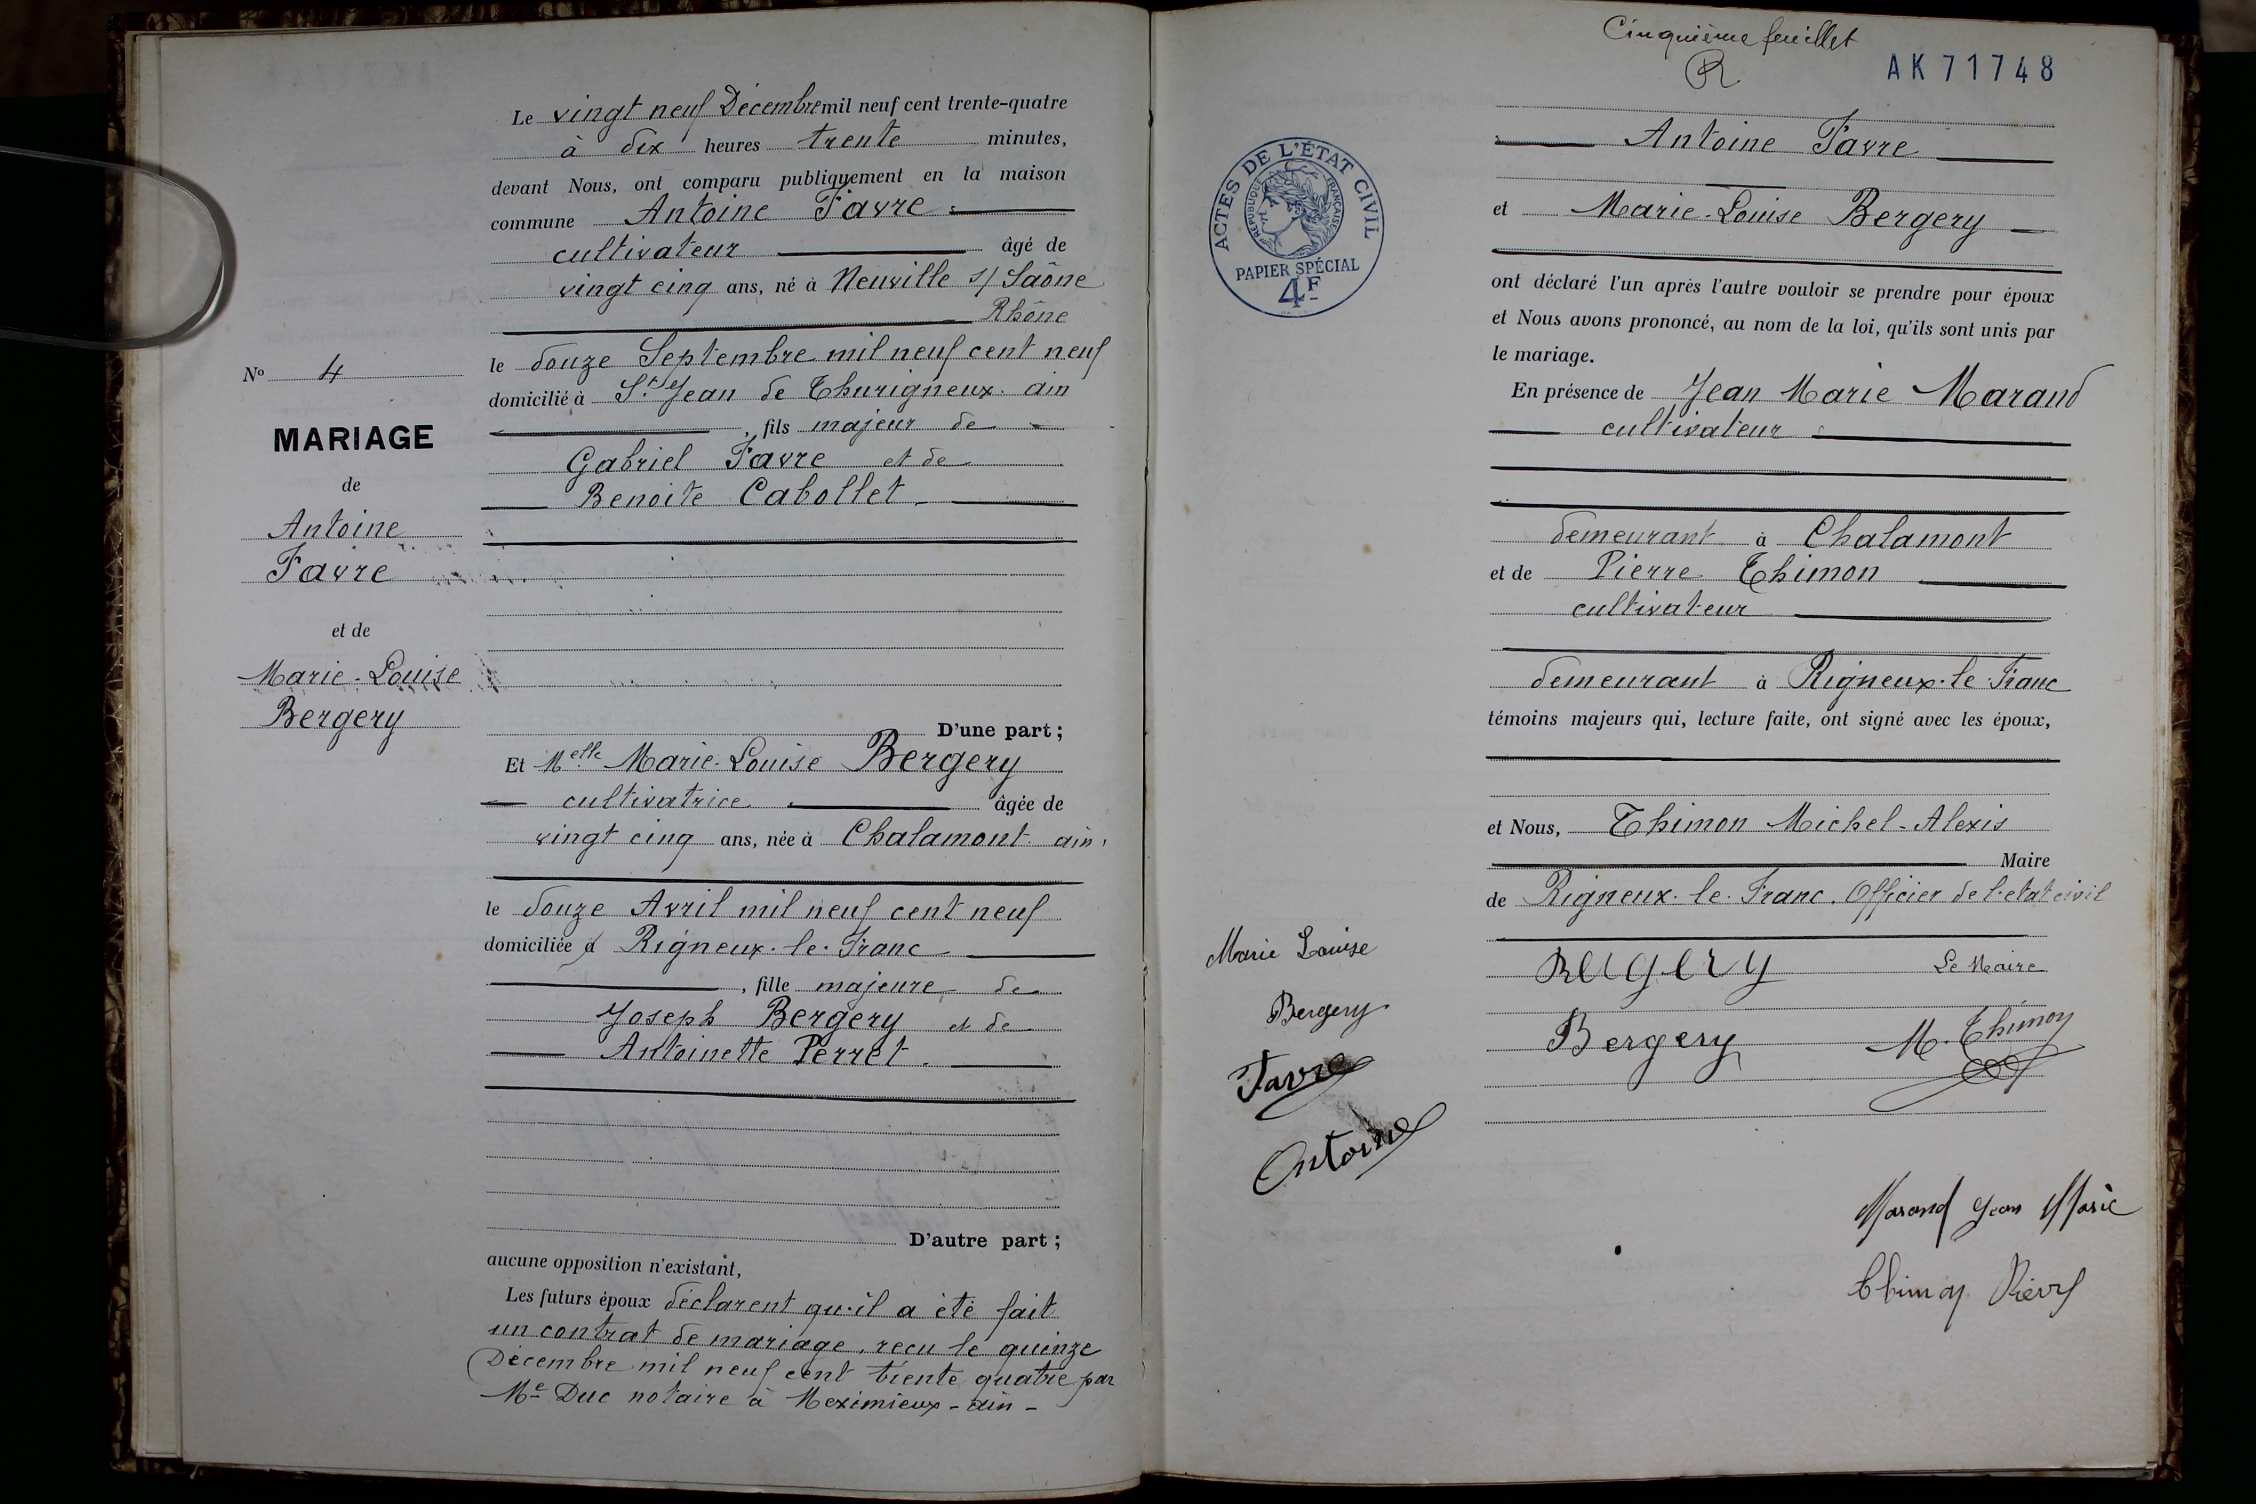 Le vingt neuf Décembre mil neuf cent trente-quatre
à dix heures trente minutes,
devant Nous, ont comparu publiquement en la maison
commune Antoine Favre
cultivateur âgé de
vingt cinq ans, né à Neuville s/ Saône
Rhône
le douze Septembre mil neuf cent neuf
domicilié à St Jean de Thurigneux. ain
, fils majeur de
Gabriel Favre et de
Benoite Cabollet.
No 4
MARIAGE
de
Antoine
Favre
et de
Marie-Louise
Bergery
D'une part ;
Et Melle Marie-Louise Bergery
cultivatrice âgée de
vingt cinq ans, née à Chalamont. ain
le douze Avril mil neuf cent neuf
domiciliée à Rigneux-le-Franc
, fille majeure de
Joseph Bergery et de
Antoinette Perret.
D'autre part ;
aucune opposition n'existant,
Les futurs époux déclarent qu'il a été fait
un contrat de mariage, recu le quinze
Décembre mil neuf cent trente quatre par
Me Duc notaire à Meximieux - ain -
Cinquième feuillet
R
AK 71748
ACTES DE L'ÉTAT CIVIL
RÉPUBLIQUE FRANÇAISE
PAPIER SPÉCIAL
4F
Antoine Favre
et Marie-Louise Bergery
ont déclaré l'un après l'autre vouloir se prendre pour époux
et Nous avons prononcé, au nom de la loi, qu'ils sont unis par
le mariage.
En présence de Jean Marie Marand
cultivateur
demeurant à Chalamont
et de Pierre Thimon
cultivateur
demeurant à Rigneux-le-Franc
témoins majeurs qui, lecture faite, ont signé avec les époux,
et Nous, Thimon Michel-Alexis
Maire
de Rigneux-le-Franc. Officier de l'etat civil
Marie Louise
Bergery
Favre
Antoine
Le Maire
Bergery
M. Thimon
Marand Jean Marie
Thimon Pierre